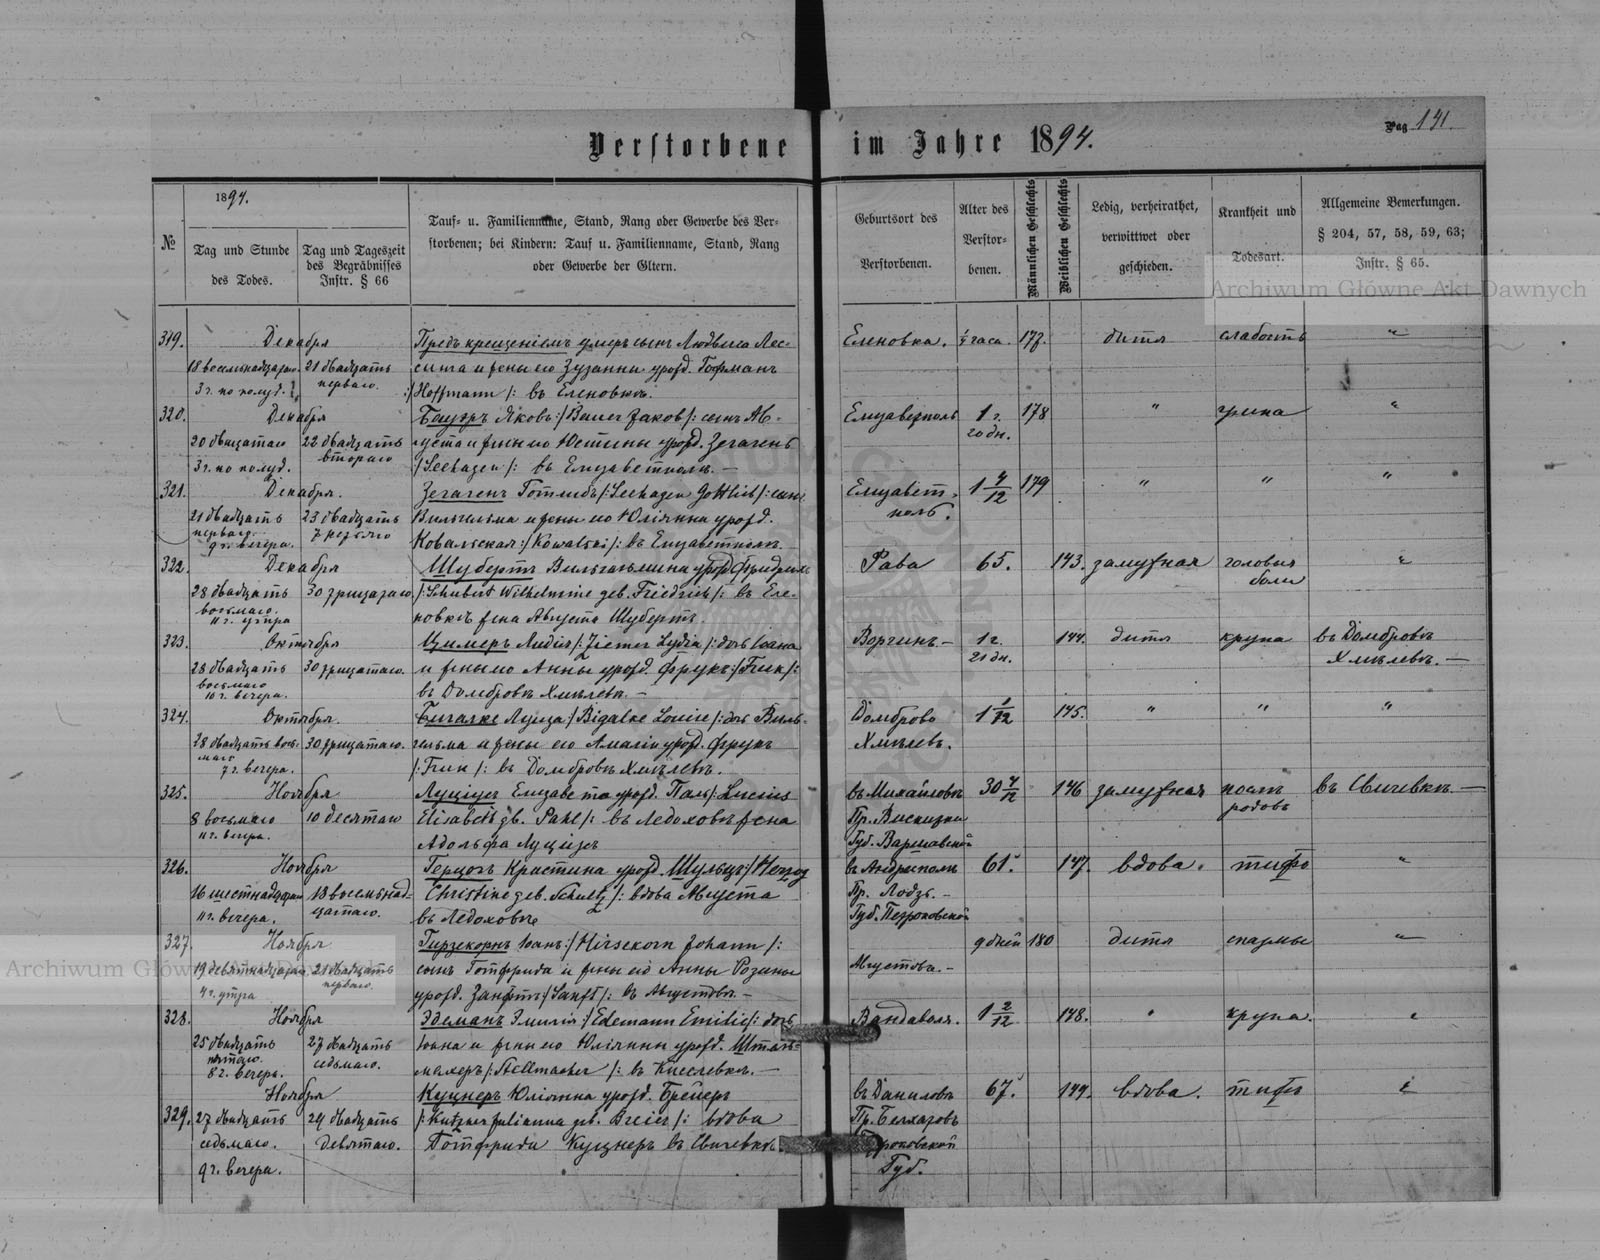 Verstorbene im Jahre 1894.
Pag 141.
№
1894.
Tag und Stunde
des Todes.
Tag und Tageszeit
des Begräbnisses
Instr. § 66
Tauf- u. Familienname, Stand, Rang oder Gewerbe des Ver-
storbenen; bei Kindern: Tauf u. Familienname, Stand, Rang
oder Gewerbe der Eltern.
Geburtsort des
Verstorbenen.
Alter des
Verstor-
benen.
Männlichen Geschlechts
Weiblichen Geschlechts
Ledig, verheirathet,
verwittwet oder
geschieden.
Krankheit und
Todesart.
Allgemeine Bemerkungen.
§ 204, 57, 58, 59, 63;
Instr. § 65.
Archiwum Główne Akt Dawnych
319. Декабря Предъ крещенiемъ умеръ сынъ Людвига Лес- Еленовка. часа. дитя слабость "
21 двадцать и жены его Зузанны урожд. Гофманъ
3 ч. по полуд. перваго. :/Hoffmann/: въ Еленовкѣ.
320. Декабря Бауэръ Яковъ:/Bauer Jakob/: сынъ Ав- Елизаветполь 1 г. 178 " "
20 двацатаго 22 двадцать густа и жены его Юстины урожд. Зегагенъ 20 дн.
3 ч. по полуд. втораго /Seehagen/: въ Елизаветполѣ. —
321. Декабря. Зегагенъ Готлибъ/:Seehagen Gottlieb/: сынъ Елизавет- 1 4/12 179 " " "
21 двадцать 23 двадцать Вильгельма и жены его Юлiянна урожд. поль.
перваго 9 ч. вечера. Ковальская:/Kowalski/: въ Елизаветполѣ.
322. Декабря Шубертъ Вильгельмина урожд. Фридрихъ Рава 65. 143. замужная головыя боли "
28 двадцать 30 /:Schubert Wilhelmine geb. Friedrich/: въ Еле-
восьмаго. 11 ч. утра новкѣ жена Августа Шубертъ.
323. Октября Цимеръ Лидiя/:Ziemer Lydia/: дочь Iоана 1 г. 144. дитя крупа въ Домбровѣ
28 двадцать и жены его Анны урожд. Фрукъ: 21 дн. Хмѣлевѣ. —
восьмаго 10 ч. вечера. въ Домбровѣ Хмѣлевѣ. —
324. Октября. Бигалке Луиза:/Bigalke Louise/: дочь Виль- Домброво 1 1/12 145. " " "
28 двадцать вось- гельма и жены его Амалiи урожд. Фрукъ Хмѣлевъ.
маго 7 ч. вечера. въ Домбровѣ Хмѣлевѣ.
325. Ноября Луцiусъ Елизавета урожд. Паль/:Lucius въ Михайловѣ 30 146 замужная послѣ родовъ въ Свичевкѣ. —
8 восьмаго 10 десятаго Elisabeth gb. Pahl/: въ Ледоховѣ жена Пр.
11 ч. вечера. Адольфа Луцiусъ Губ. Варшавской
326. Ноября Герцогъ Кристина урожд. Шульцъ:/Herzog въ Андрiполѣ 61. 147. вдова. тифъ "
16 18 восемьнад- Christine geb. Schultz/: вдова Августа Пр. Лодзь. —
11 ч. вечера. цатаго. въ Ледоховѣ Губ. Петроковской
327. Ноября Гирзекорнъ Iоанъ:/Hirsekorn Johann/: 9 дней 180 дитя спазмы "
Archiwum Główne Akt Dawnych
21 двадцать сынъ Готфрида и жены его Анны Розины Августова. —
4 ч. утра перваго. урожд. Занфтъ:/Sanft/: въ Августовѣ. —
328. Ноября Эдеманъ Эмилiя:/Edemann Emilie/: дочь Вандаволя. 1 2/12 148. " крупа. "
25 двадцать 27 двадцать Iоана и жены его Юлiянны урожд. Штель-
пятаго. 8 ч. вечера. седьмаго. махеръ/:Stellmacher/: въ Киселевкѣ. —
Ноября Куцнеръ Юлiянна урожд. Брейеръ въ Даниловѣ 67. 149. вдова. тифъ "
329. 27 двадцать 29 двадцать /:Kutzner Julianna gb. Breier/: вдова Пр.
седьмаго. девятаго. Готфрида Куцнеръ въ Свичевкѣ.
9 ч. вечера. Губ.